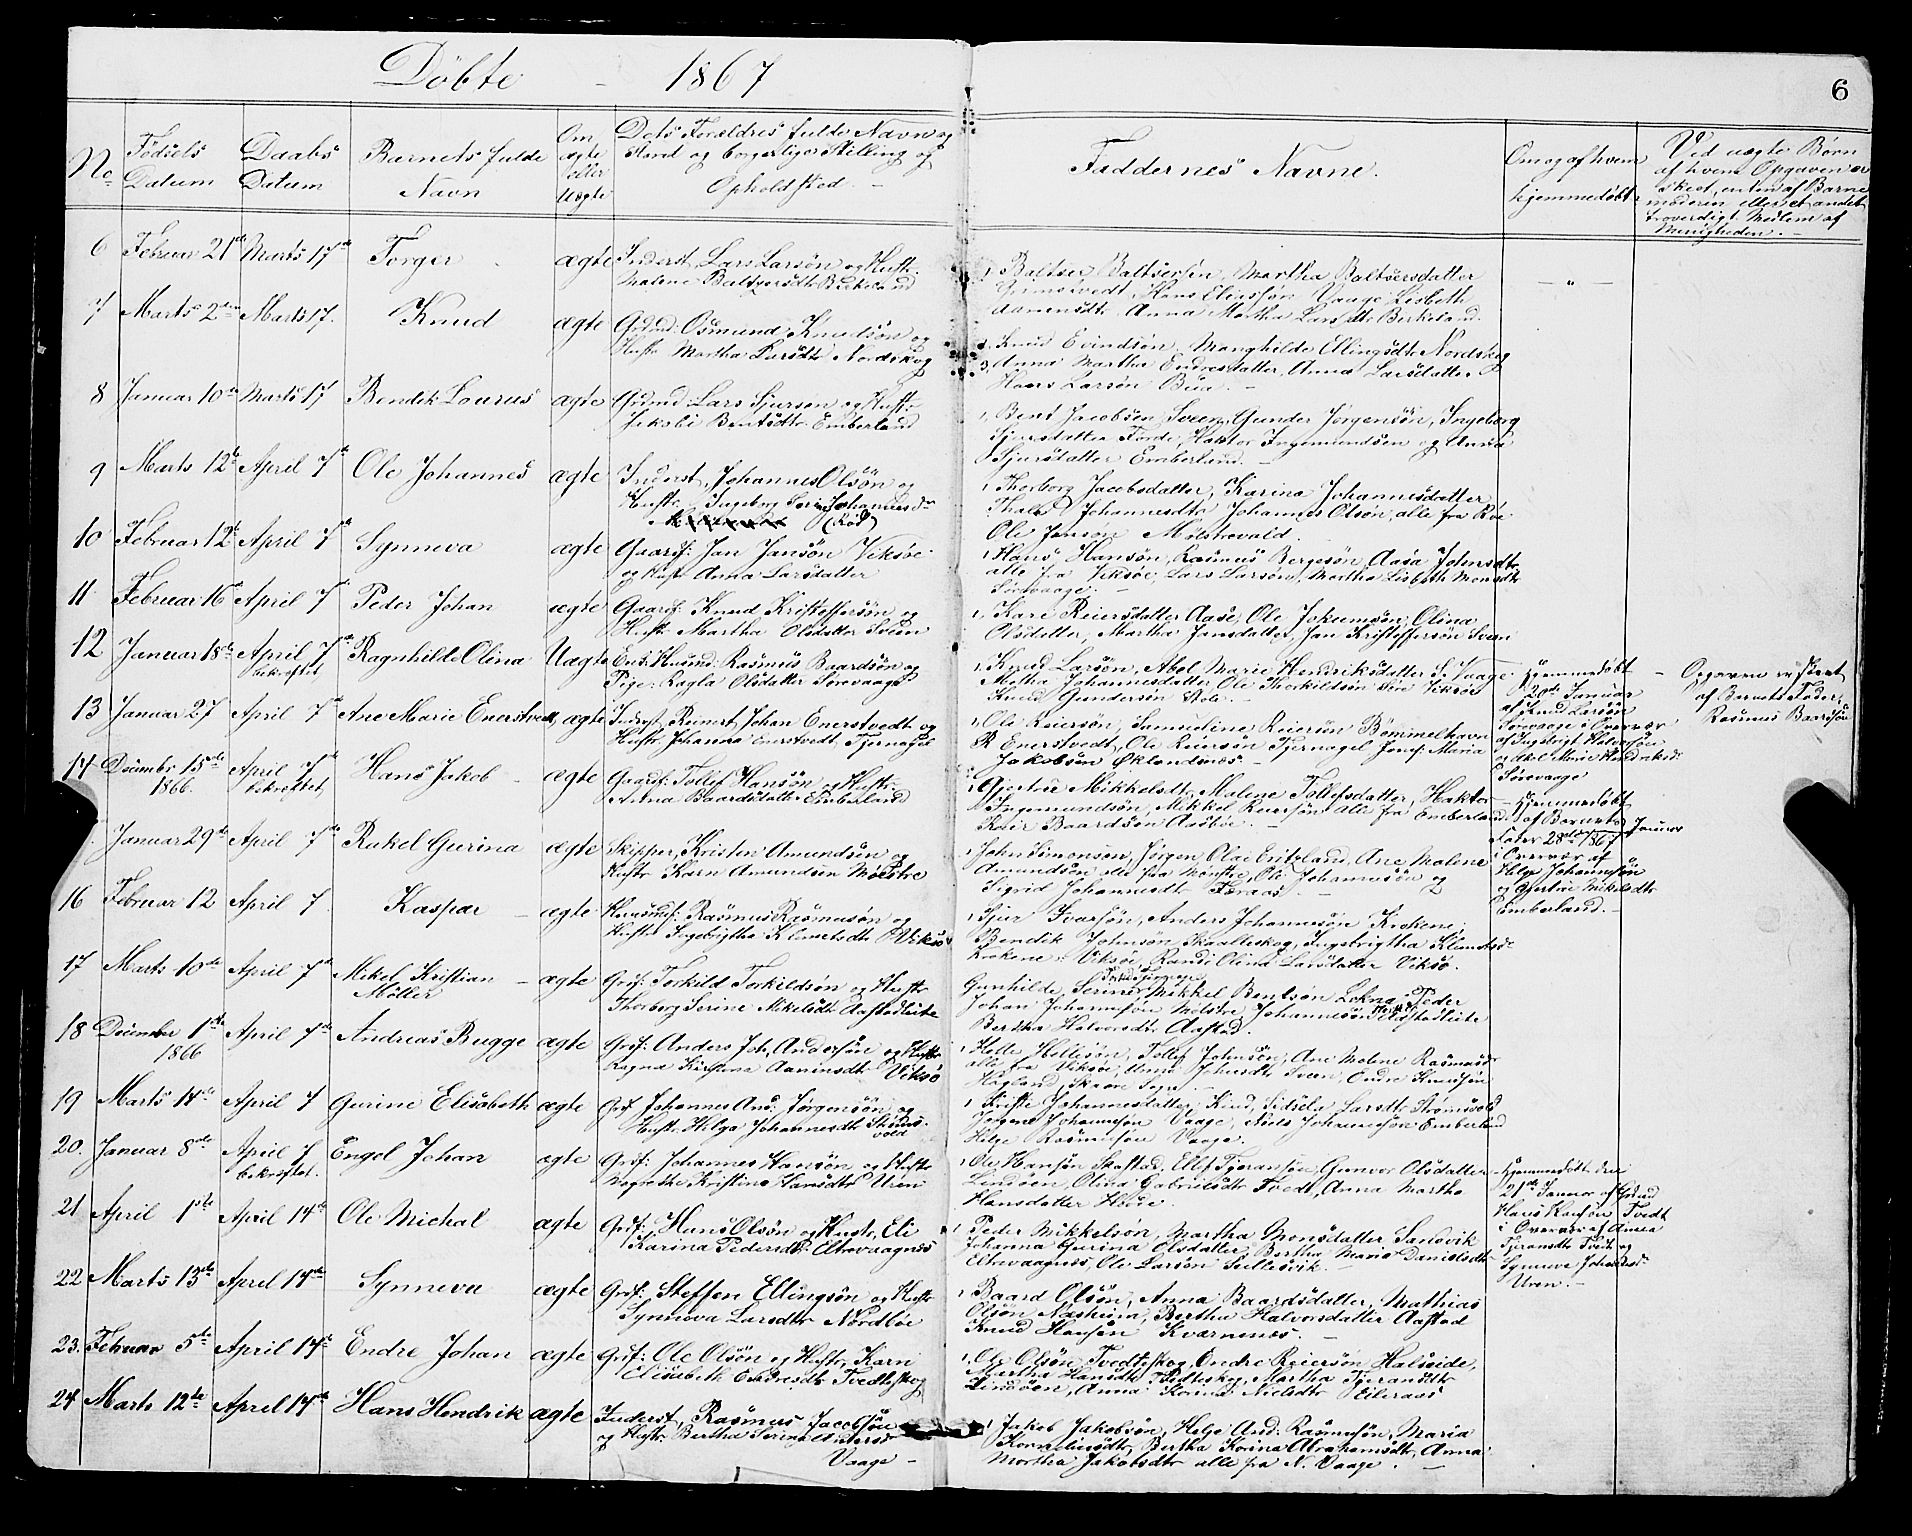 Döbte - 1867
6
No
Födsels Datum
Daabs Datum
Barnets fulde Navn
Om ægte eller Uægte
Dets Forældres fulde Navn og
Stand og borgerlige Stilling og
Opholdsted. -
Faddernes Navne.
Om og af hvem
hjemmedøbt
Ved uægte Börn
af hvem Opgaven er
skeet, enten af Barne
moderen eller et andet
troverdigt Medlem af
Menigheden. -
6 Februar 21de Marts 17de Torger ægte Inderst Lars Larsön og Hustr.
Malene Baltzersdtr Birkeland
1, Baltser Baltsersen, Martha Baltsersdatter
Grimstvedt, Hans Eliassön Vaage, Lisbeth
Aamensdtr Anna Martha Larsdtr Birkeland.
- " -
7 Marts 2den Marts 17. Knud ægte Grdmd: Osmund Knudsön og
Hustr Martha Larsdtr Nordskog
1, Knud Evindsön, Manghilde Ellingsdtr Nordskog
3, Anna Martha Endresdatter, Anna Larsdatter
Hans Larsön Bua. -
8 Januar 10de Marts 17 Bendik Lourus ægte Grdmd: Lars Sjursen og Hustr.
Jakobi Bentsdtr. Emberland
1, Bent Jacobsen, Sveen, Gunder Jörgensön, Ingeborg
Sjursdatter Förde, Haktor Ingemundsen og Anna
Sjursdatter Emberland. -
9 Marts 12te April 7de Ole Johannes ægte Inderst, Johannes Olsön og
Hustr. Ingeborg Serine Johannesdr
(Röd)
1 Thorborg Jacobsdatter, Karina Johannesdatter
Thale Johannesdtr Johannes Olsön, alle fra Röe
Ole Jansön Mølstrevold.
10 Februar 12te April 7de Synneva ægte Gaarif: Jan Jansön Viksöe
og Hustr Anna Larsdatter
1, Hans Hansön, Rasmus Bergesön, Aasa Johnsdtr.
alle fra Viksöe, Lars Larsön, Martha Lisbeth Monsdtr
Sörevaage. -
11 Februar 16 April 7 Peder Johan ægte Gaarif: Knud Kristoffersön og
Hustr. Martha Olsdatter Sveen
1, Kare Reiersdatter Aase, Ole Jokumsön, Olina
Olsdatter, Martha Jansdatter, Jan Kristoffersön Sveen
12 Januar 18de April 7de
bekræftet Ragnhilde Olina Uægte Enk: Husmd: Rasmus Baardsön og
Pige: Ragla Olsdatter Sörevaage
1, Knud Larsön, Abel Marie Hendriksdatter S. Vaage
Metha Johannesdatter Ole Thorkildsön Sve Viksöe
Knud Gundersön Vole. -
Hjemmedöbt
20de Januar
af Knud Larsön
Sörevaage i Overvær
af Ingbrigt Halvorsön
og Abel Marie Hendriksdr
Sörevaage
- Opgaven er skeet
af Barnets Fader,
Rasmus Baardsön
13 Januar 27 April 7de Ane Marie Enerstvedt, ægte Inderst, Reinert Johan Enerstvedt og
Hustr. Johanna Enerstvedt Tjernagel
1, Ole Reiersön, Samueline Reiersön Bömmelhavn
R Enerstvedt, Ole Reiersön Tjernagel Jomf: Maria
Jakobsön Øklandnæs -
14 December 15de
1866 April 7de
bekreftet Hans Jakob - ægte Gaarif: Tollef Hansön og Hustr.
Anna Baardsdatter Emberland
1, Gjertine Mikkelsdtr, Malene Tollefsdatter, Haktor
Ingemundsön, Mikkel Reiersön alle fra Emberland
Knut Baardsön Aasböe. -
- Hjemmedöbt
af Barnets
Fader 28de Januar 1867
i Overvær af
Helge Johannesön
og Gjertine Mikelsdtr
Emberland. -
Januar 29de April 7de Rakel Gurina ægte Skipper, Kristen Amundsen og
Hustr Karn Amundsen Mölstre
1, John Simonsen, Jörgen Olai Eritzland, Ane Malene
Amundsön alle fra Mønstre, Ole Johannesön og
Sigrid Johannesdt Foraas. -
16 Februar 12 April 7. Kaspar - ægte Husmdf: Rasmus Rasmusön og
Hustr Ingebrigtha Klemetsdtr Viksö
1, Sjur Ivarsön, Anders Johannesön Krokene,
Bendik Johnsön Skaalleskog, Ingebrigtha Klemetsdr
Krokene, Viksöe, Randi Olina Larsdatter Viksö.
17 Marts 10de April 7de Mikel Kristian
Möller - ægte Grif: Torkild Torkildsön og Hustr
Thorborg Serine Mikelsdtr Aafstadleite
Gunhilde, Serine, Mikkel Bentsön Lokna Peder
Johan Johannesön Mölstre, Johannesön Aafstadleite
Bertha Halvorsdtr Aafstad.
18 December 1ste
1866 April 7de Andreas Rugge ægte Grif: Anders Joh. Andersöe og Hustr
Ragna Kirstine Aaninsdtr Viksö
1 Helle Hellesön, Tollef Johnsön, Ane Malene Rasmusdr
alle fra Viksöe, Anna Johnsdtr Sveen, Endre Knudsön
Hagland, Skaare Sogn. -
19 Marts 14de April 7 Gurine Elisabeth ægte Grif Johannes And: Jörgensön, og
Hustr. Helga Johannesdtr Ströms-
vold
1 Kirstie Johannesdatter, Knud, Sidsela Larsdtr Strömsvold
Jörgen Johannesön Vaage, Niels Johannesön Emberland
Helge Rasmusön Vaage.
20. Januar 8de April 7
bekreftet. Engel Johan ægte Grif: Johannes Hansön og Hustr
Magrethe Kristine Larsdtr Uren
1 Ole Hansön Skafstad, Ellef Tjeransön, Gunvor Olsdatter
Lindöen, Olina Gabrielsdtr Tvedt, Anna Martha
Hansdatter Höide. -
- Hjemmedöbt den
21de Januar af Grmd
Hans Hansön Tvedt
i Overvær af Anna
Tjeransdtr Tveit og
Synneve Johansdr
Uren. -
21 April 1ste April 14de Ole Michal ægte Grif: Hans Olsön og Hustr, Eli
Karina Pedersdtr Eltravaagnes
1 Peder Mikkelsön, Martha Monsdatter Sandvik
Johanna Gurina Olsdatter, Bertha Maria Danielsdtr
Eltravaagnes, Ole Larsön Sillesvik. -
22 Marts 13de April 14de Synneva ægte Grif: Steffen Ellingsön og Hustr
Synneva Larsdtr Nordböe
1 Baard Olsön, Anna Baardsdatter, Mathias
Olsön Næsheim, Bertha Halvorsdatter Aafstad
Knud Hansön Kværnenæs. -
23. Februar 5de April 14de Endre Johan ægte Grif: Ole Olsön og Hustr, Karn
Elisabeth Endresdtr Tvedteskog
1, Ole Olsön Tvedteskog, Endre Reiersön Halseide,
Martha Hansdtr Tvedteskog, Martha Tjeransdtr
Lindöen, Anna Karina Nielsdtr Eileraas
24 Marts 12te April 14de Hans Hendrik ægte Inderst, Rasmus Jacobsön
og Hustr: Bertha Serina Andersdr
Vaage -
1 Jakob Jakobsön, Helge And. Rasmusön, Maria
Korneliusdtr, Bertha Korina Abrahamsdtr, Anna
Martha Jakobsdtr alle fra N. Vaage. -